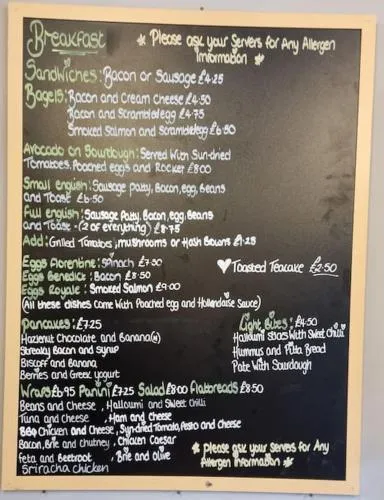 Breakfast
* Please ask your Servers for Any Allergen
Information *
Sandwiches: Bacon or Sausage £4.25
Bagels: Bacon and Cream cheese £4.50
Bacon and Scrambledegg £4.75
Smoked Salmon and Scrambledegg £6.50
Avocado on Sourdough: Served With Sun-dried
Tomatoes, Poached eggs and Rocket £8.00
Small english: Sausage patty, Bacon, egg, Beans
and Toast £6.50
Full english: Sausage Patty, Bacon, egg, Beans
and Toast - (2 of everything) £8.75
Add: Grilled Tomatoes, mushrooms or Hash Browns £1.25
Eggs Florentine: Spinach £7.50
Eggs Benedict: Bacon £8.50
Eggs Royale: Smoked Salmon £9.00
(All these dishes Come With Poached egg and Hollandaise Sauce)
♥ Toasted Teacake £2.50
Pancakes: £7.25
Hazlenut Chocolate and Banana(N)
Streaky Bacon and syrup
Biscoff and Banana
Berries and Greek yogurt
Light Bites: £4.50
Halloumi sticks With Sweet Chilli
Hummus and Pitta Bread
Pate With Sourdough
Wraps £6.95 Panini £7.25 Salad £8.00 flatbreads £8.50
Beans and Cheese, Halloumi and Sweet Chilli
Tuna and Cheese, Ham and Cheese
BBQ Chicken and Cheese, Sundried Tomato, Pesto and Cheese
Bacon, Brie and chutney, Chicken Caesar
Feta and Beetroot, Brie and Olive
Sriracha chicken
* Please ask your Servers for Any
Allergen information *